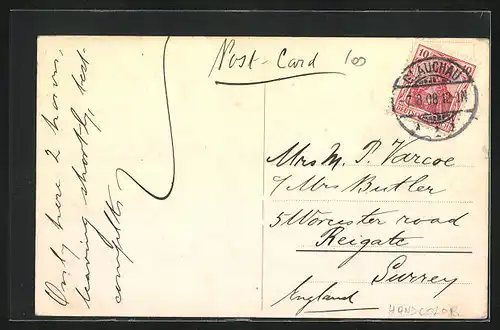 Post-Card
100
10 10
GLAUCHAU
8.08.12-1N
Mrs M. P. Varcoe
c/ Mrs Butler
5 Worcester road
Reigate
Surrey
England
HANDCOLOR.
Only here 2 hours,
leaving shortly, bed-